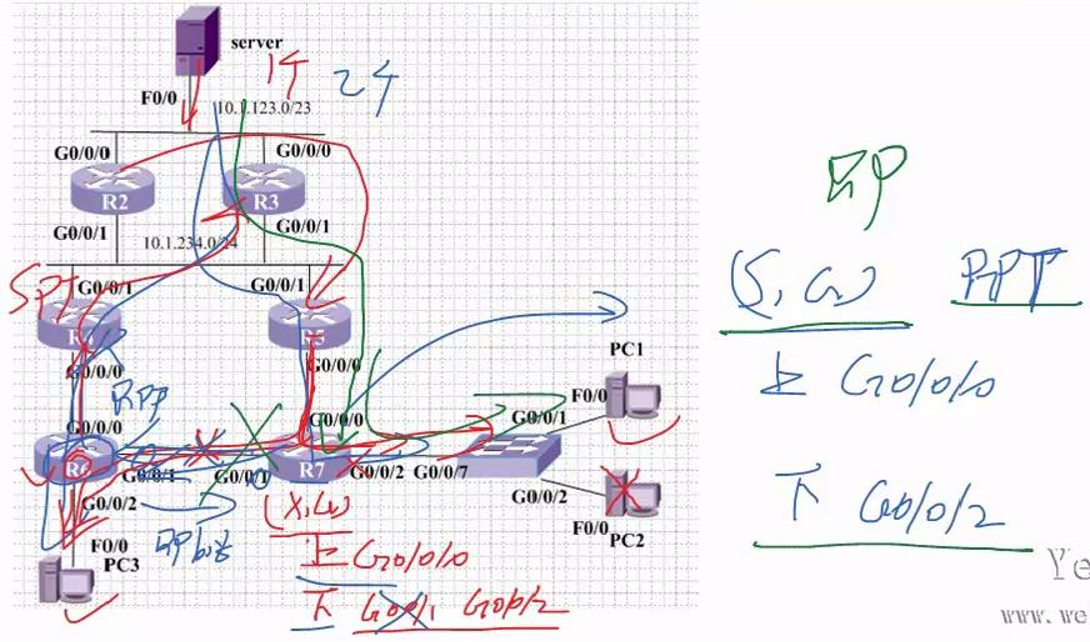 server
14 24
F0/0
10.1.123.0/23
G0/0/0
G0/0/0
R2
R3
G0/0/1
G0/0/1
10.1.234.0/24
SPT
G0/0/1
G0/0/1
R5
G0/0/0
G0/0/0
RPF
G0/0/0
G0/0/0
R6
G0/0/1
G0/0/1
R7
G0/0/2
G0/0/7
G0/0/1
F0/0
PC1
G0/0/2
F0/0
PC2
G0/0/2
F0/0
PC3
(*,G)
上 G0/0/0
下 G0/0/1 G0/0/2
RP
(S,G) RPT
上 G0/0/0
下 G0/0/2
Ye
www. we